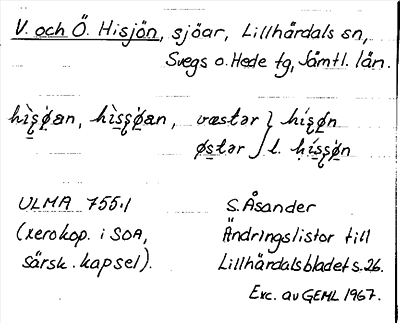 V. och Ö. Hisjön, sjöar, Lillhärdals sn,
Svegs o. Hede tg, Jämtl. län.
væstər
østər
l.
ULMA 755:1
(xerokop. i SOA,
särsk. kapsel).
S. Åsander
Ändringslistor till
Lillhärdalsbladet s. 26.
Exc. av GEML 1967.